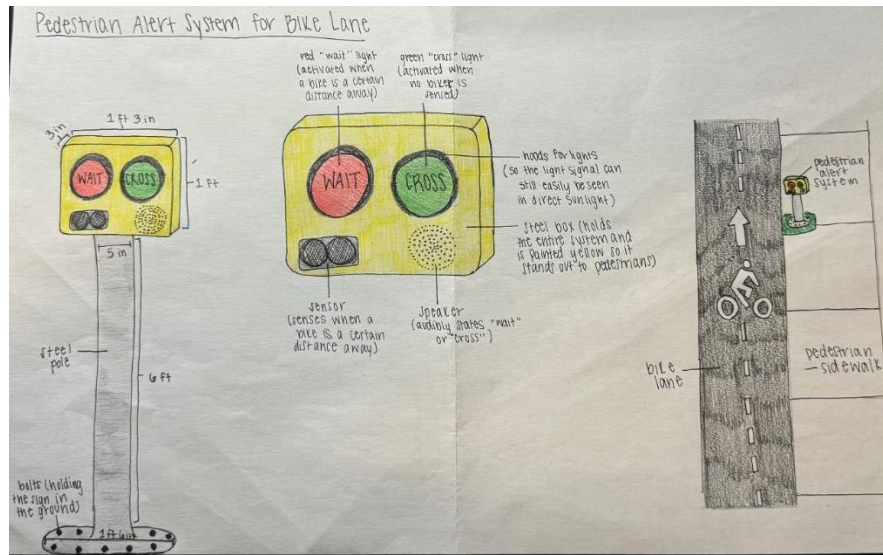 Pedestrian Alert System for Bike Lane
3 in
1 ft 3 in
WAIT
CROSS
1 ft
5 in
steel
pole
6 ft
bolts (holding
the sign in
the ground)
1 ft 6 in
red "wait" light
(activated when
a bike is a certain
distance away)
green "cross" light
(activated when
no biker is
sensed)
WAIT
CROSS
hoods for lights
(so the light signal can
still easily be seen
in direct sunlight)
steel box (holds
the entire system and
is painted yellow so it
stands out to pedestrians)
sensor
(senses when a
bike is a certain
distance away)
speaker
(audibly states "wait"
or "cross")
pedestrian
alert
system
bike
lane
pedestrian
sidewalk